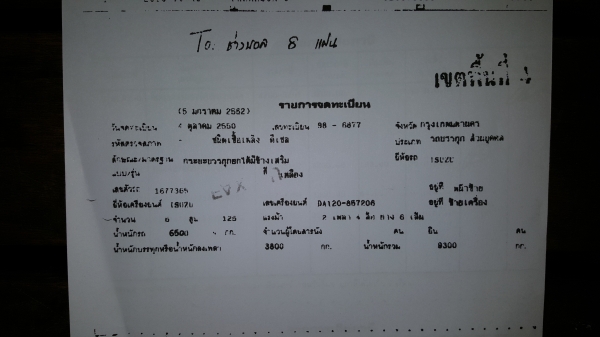 To. ช่างมอล 8 แผ่น
เขตพื้นที่ 4
(5 มกราคม 2552) รายการจดทะเบียน
วันจดทะเบียน 4 ตุลาคม 2550 เลขทะเบียน 98 - 6877 จังหวัด กรุงเทพมหานคร
รหัสตรวจสภาพ - ชนิดเชื้อเพลิง ดีเซล ประเภท รถบรรทุก ส่วนบุคคล
ลักษณะ/มาตรฐาน กระบะบรรทุกยกได้มีข้างเสริม ยี่ห้อรถ ISUZU
แบบ/รุ่น สี เหลือง
เลขตัวรถ 1677365 อยู่ที่ หน้าซ้าย
ยี่ห้อเครื่องยนต์ ISUZU เลขเครื่องยนต์ DA120-857206 อยู่ที่ ซ้ายเครื่อง
จำนวน 6 สูบ 125 แรงม้า 2 เพลา 4 ล้อ ยาง 6 เส้น
น้ำหนักรถ 6500 กก. จำนวนผู้โดยสารนั่ง คน ยืน คน
น้ำหนักบรรทุกหรือน้ำหนักลงเพลา 3800 กก. น้ำหนักรวม 9300 กก.